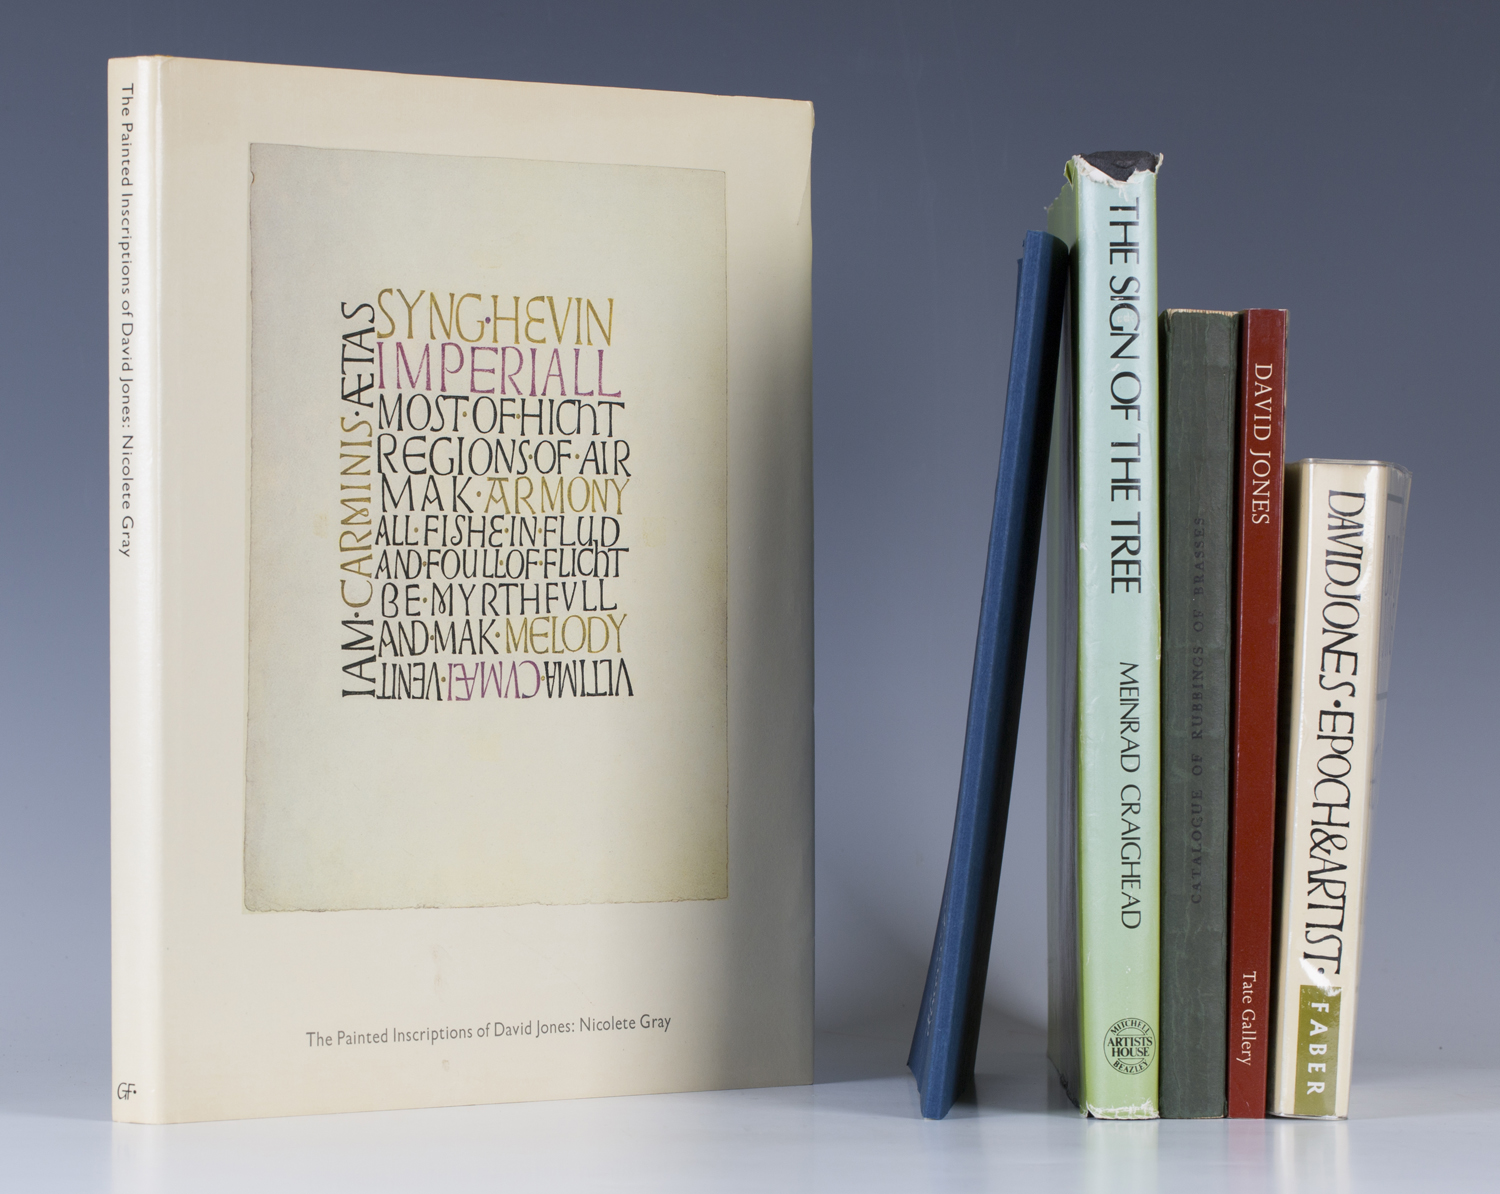 The Painted Inscriptions of David Jones: Nicolete Gray
GF.
IAM·CARMINIS·ÆTAS
SYNG·HEVIN
IMPERIALL
MOST·OF·HIGHT
REGIONS·OF·AIR
MAK·ARMONY
ALL·FISHE·IN·FLUD
AND·FOULL·OF·FLIGHT
BE·MYRTHFVLL
AND·MAK·MELODY
VLTIMA·CVMÆI·VENIT
The Painted Inscriptions of David Jones: Nicolete Gray
THE SIGN OF THE TREE
MEINRAD CRAIGHEAD
MITCHELL
ARTISTS
HOUSE
BEAZLEY
CATALOGUE OF RUBBINGS OF BRASSES
DAVID JONES
Tate Gallery
DAVID JONES·EPOCH & ARTIST·
FABER